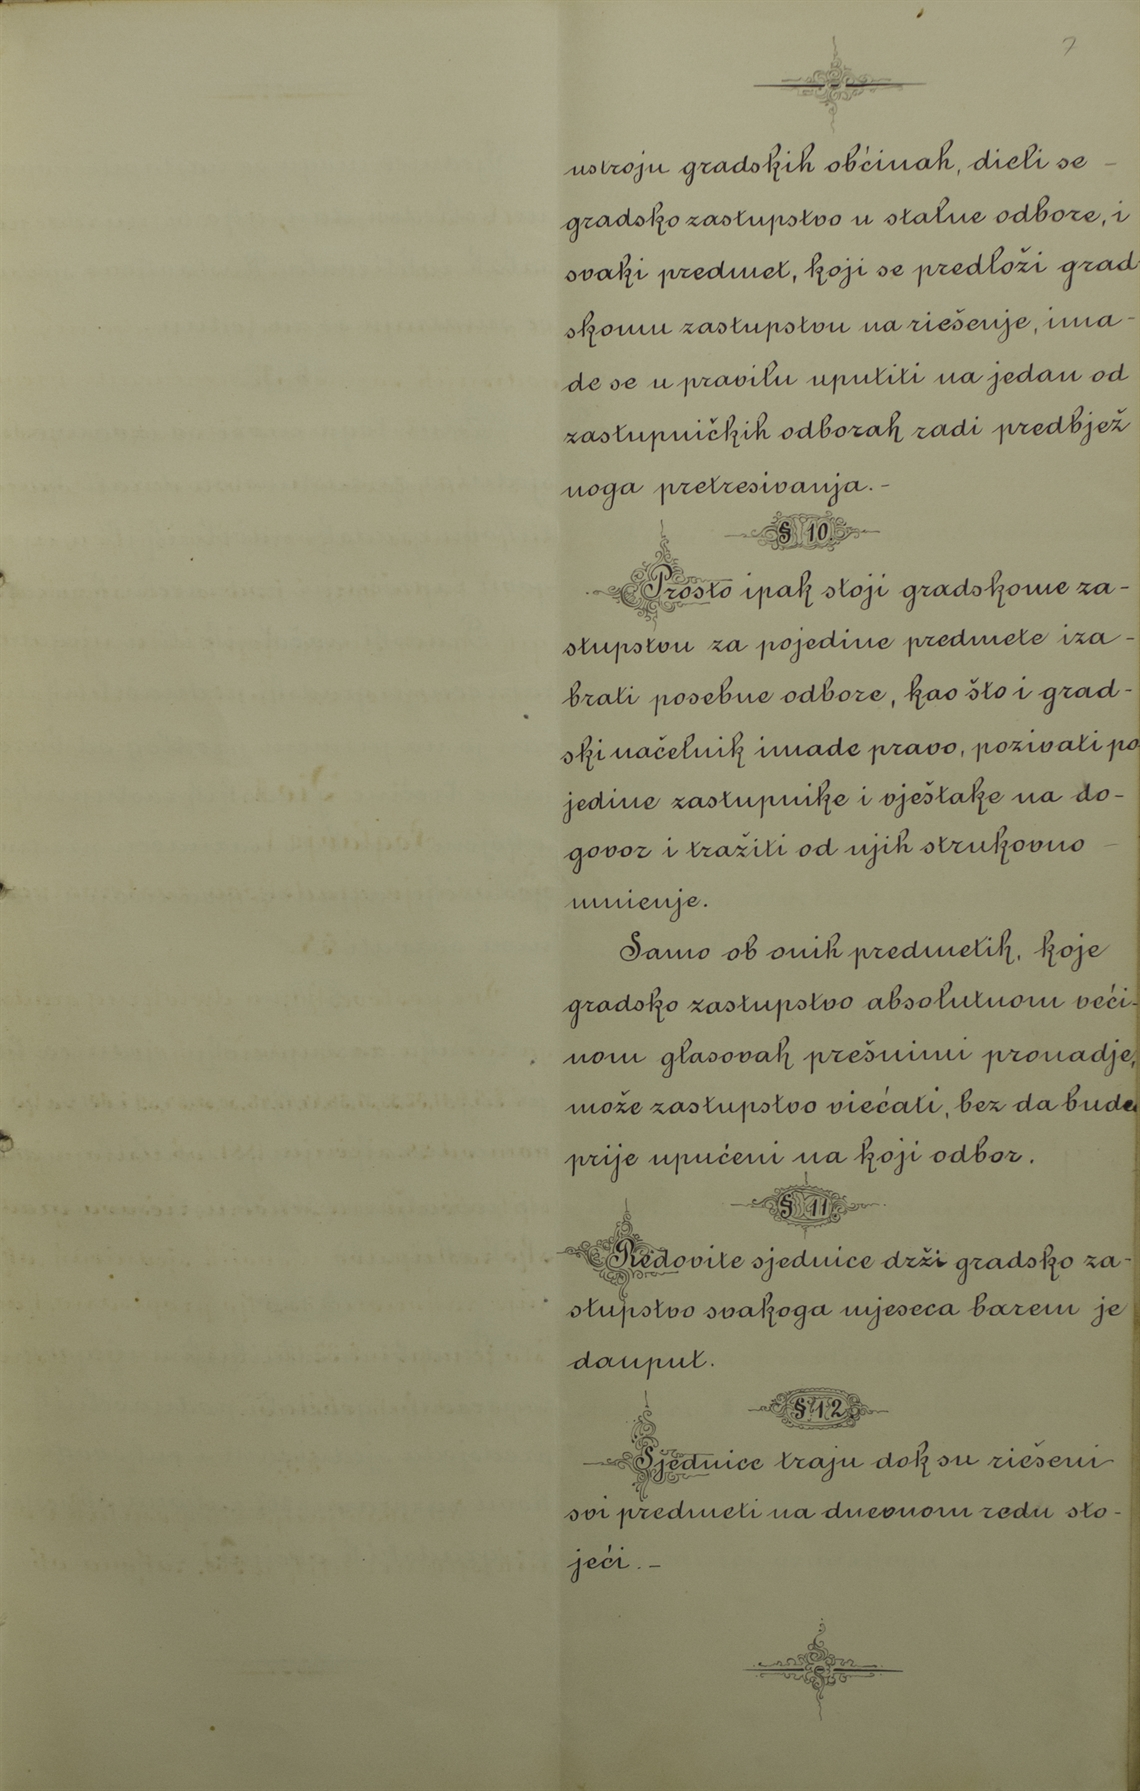 7
ustroju gradskih obćinah, dieli se –
gradsko zastupstvo u stalne odbore, i
svaki predmet, koji se predloži grad-
skomu zastupstvu na riešenje, ima-
de se u pravilu uputiti na jedan od
zastupničkih odborah radi predbjež
noga pretresivanja. –
§ 10.
Prosto ipak stoji gradskome za-
stupstvu za pojedine predmete iza-
brati posebne odbore, kao što i grad-
ski načelnik imade pravo, pozivati po
jedine zastupnike i vještake na do-
govor i tražiti od njih strukovno –
mnienje.
Samo ob onih predmetih, koje
gradsko zastupstvo absolutnom veći-
nom glasovah prešnimi pronadje,
može zastupstvo viećati, bez da budu
prije upućeni na koji odbor.
§ 11
Redovite sjednice drži gradsko za-
stupstvo svakoga mjeseca barem je
danput.
§ 12.
Sjednice traju dok su riešeni
svi predmeti na dnevnom redu sto-
jeći. –